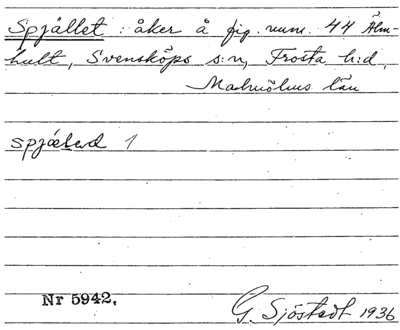 Spjället : åker å fig. num. 44 Älm-
hult, Svensköps s:n, Frosta h:d,
Malmöhus län
1
Nr 5942.
G. Sjöstedt 1936